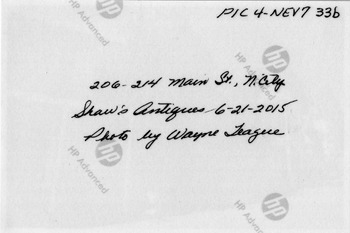 PIC 4-NEV7 33b
206-214 Main St., N.City
Shaw's Antiques 6-21-2015
Photo by Wayne League
HP Advanced
HP Advanced
HP Advanced
HP Advanced